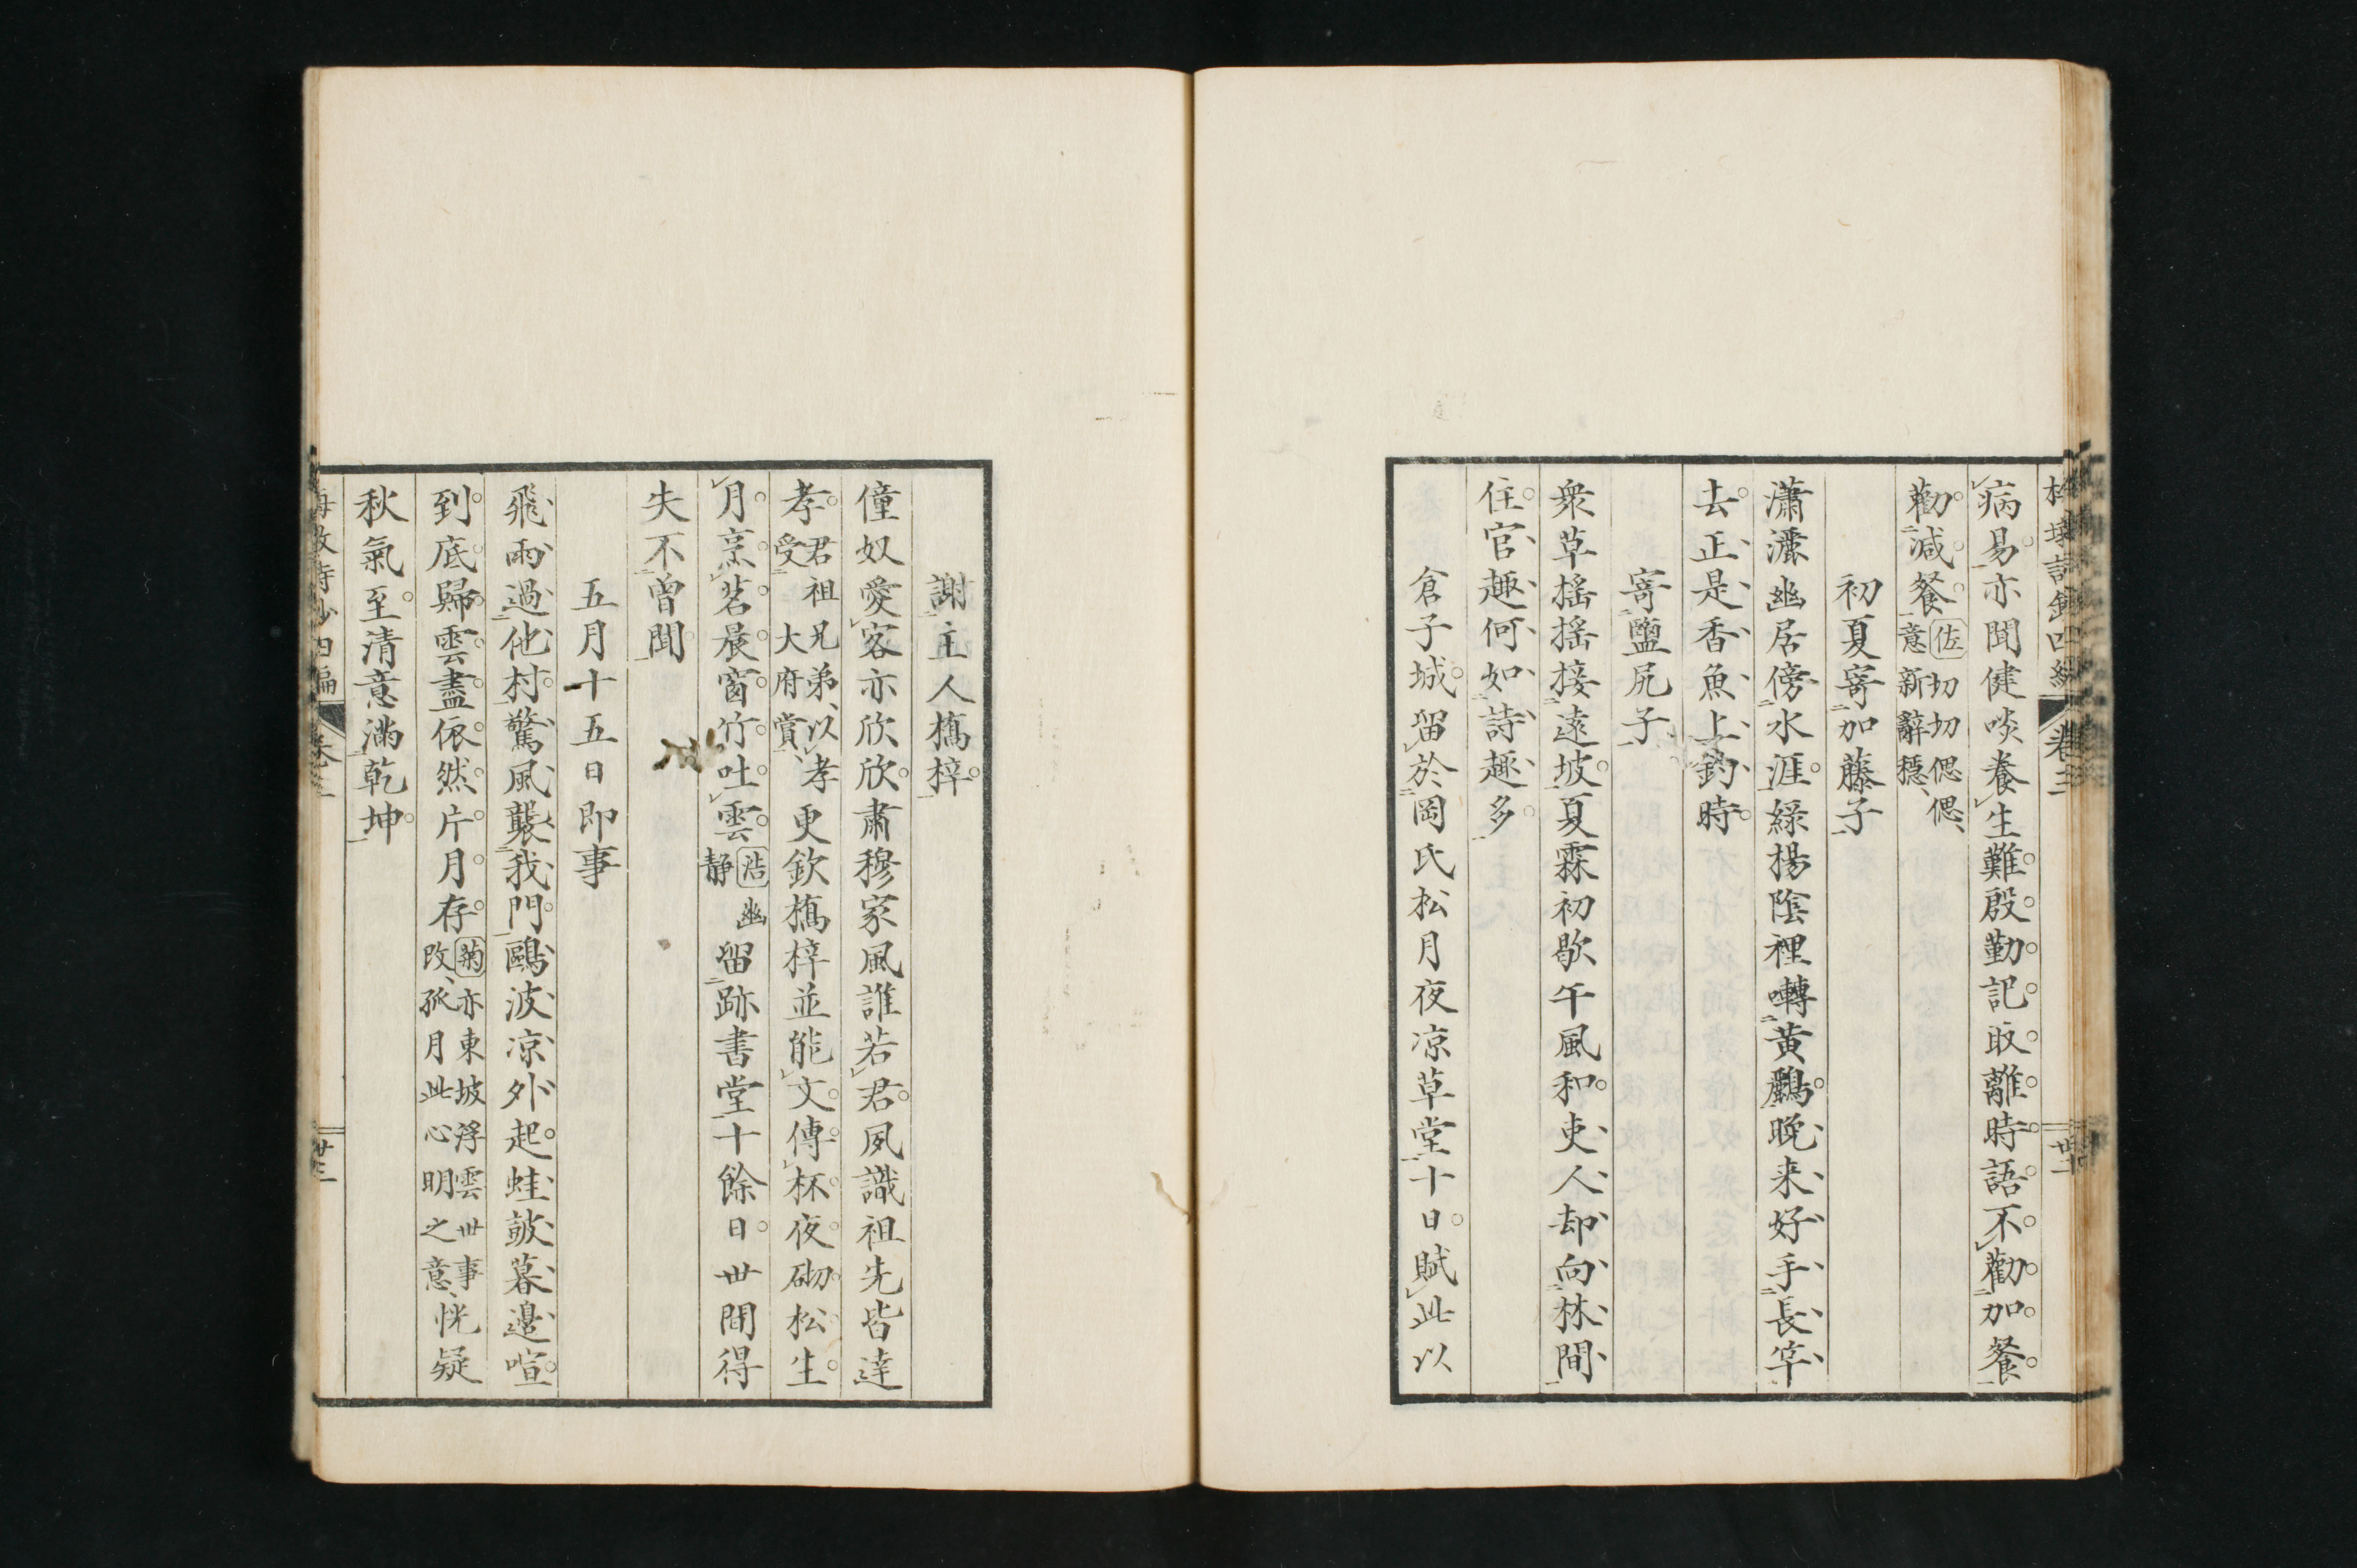 病易亦聞健啖養生難殷勤記取離時語不勸加餐
勸減餐佐切切偲偲意新辭穩
初夏寄加藤子
瀟灑幽居傍水涯緑楊陰裡囀黄鸝晩来好手長竿
去正是香魚上釣時
寄鹽尻子
衆草揺揺接遠坡夏霖初歇午風和吏人却向林間
住官趣何如詩趣多
倉子城留於岡氏松月夜凉草堂十日賦此以
謝主人橋梓
僮奴愛客亦欣欣肅穆家風誰若君夙識祖先皆達
孝君祖兄弟以孝受大府賞更欽橋梓並能文傳杯夜砌松生
月烹茗晨窗竹吐雲浩幽静留跡書堂十餘日丗間得
失不曽聞
五月十五日即事
飛雨過他村驚風襲我門鷗波凉外起蛙鼓暮邊喧
到底歸雲盡依然片月存菊亦東坡浮雲丗事改孤月此心明之意恍疑
秋氣至清意滿乾坤
卷三